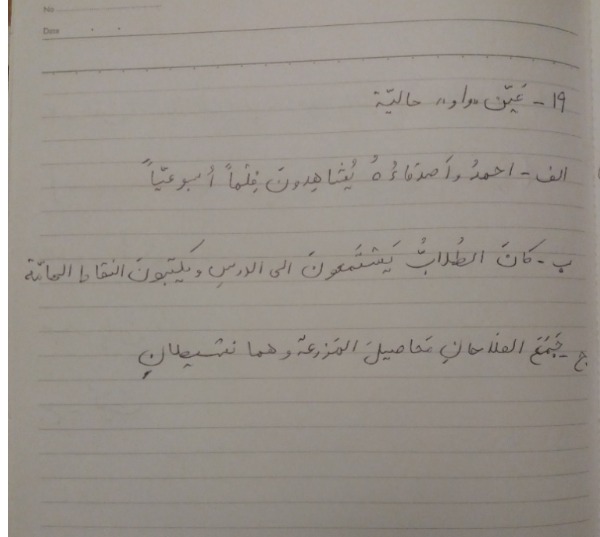 No
Date
١٩ - عَيِّن «واو» حاليّة
الف - احمدُ و أَصدقاءُهُ يُشاهِدونَ فِلْماً أُسبوعيّاً
ب - كانَ الطُلابُ يَسْتَمعونَ الى الدرسِ و يَكتبونَ النقاط الهامّة
ج - يَجْمَعُ الفلاحانِ مَحاصيلَ المَزرعة و هما نشيطانِ